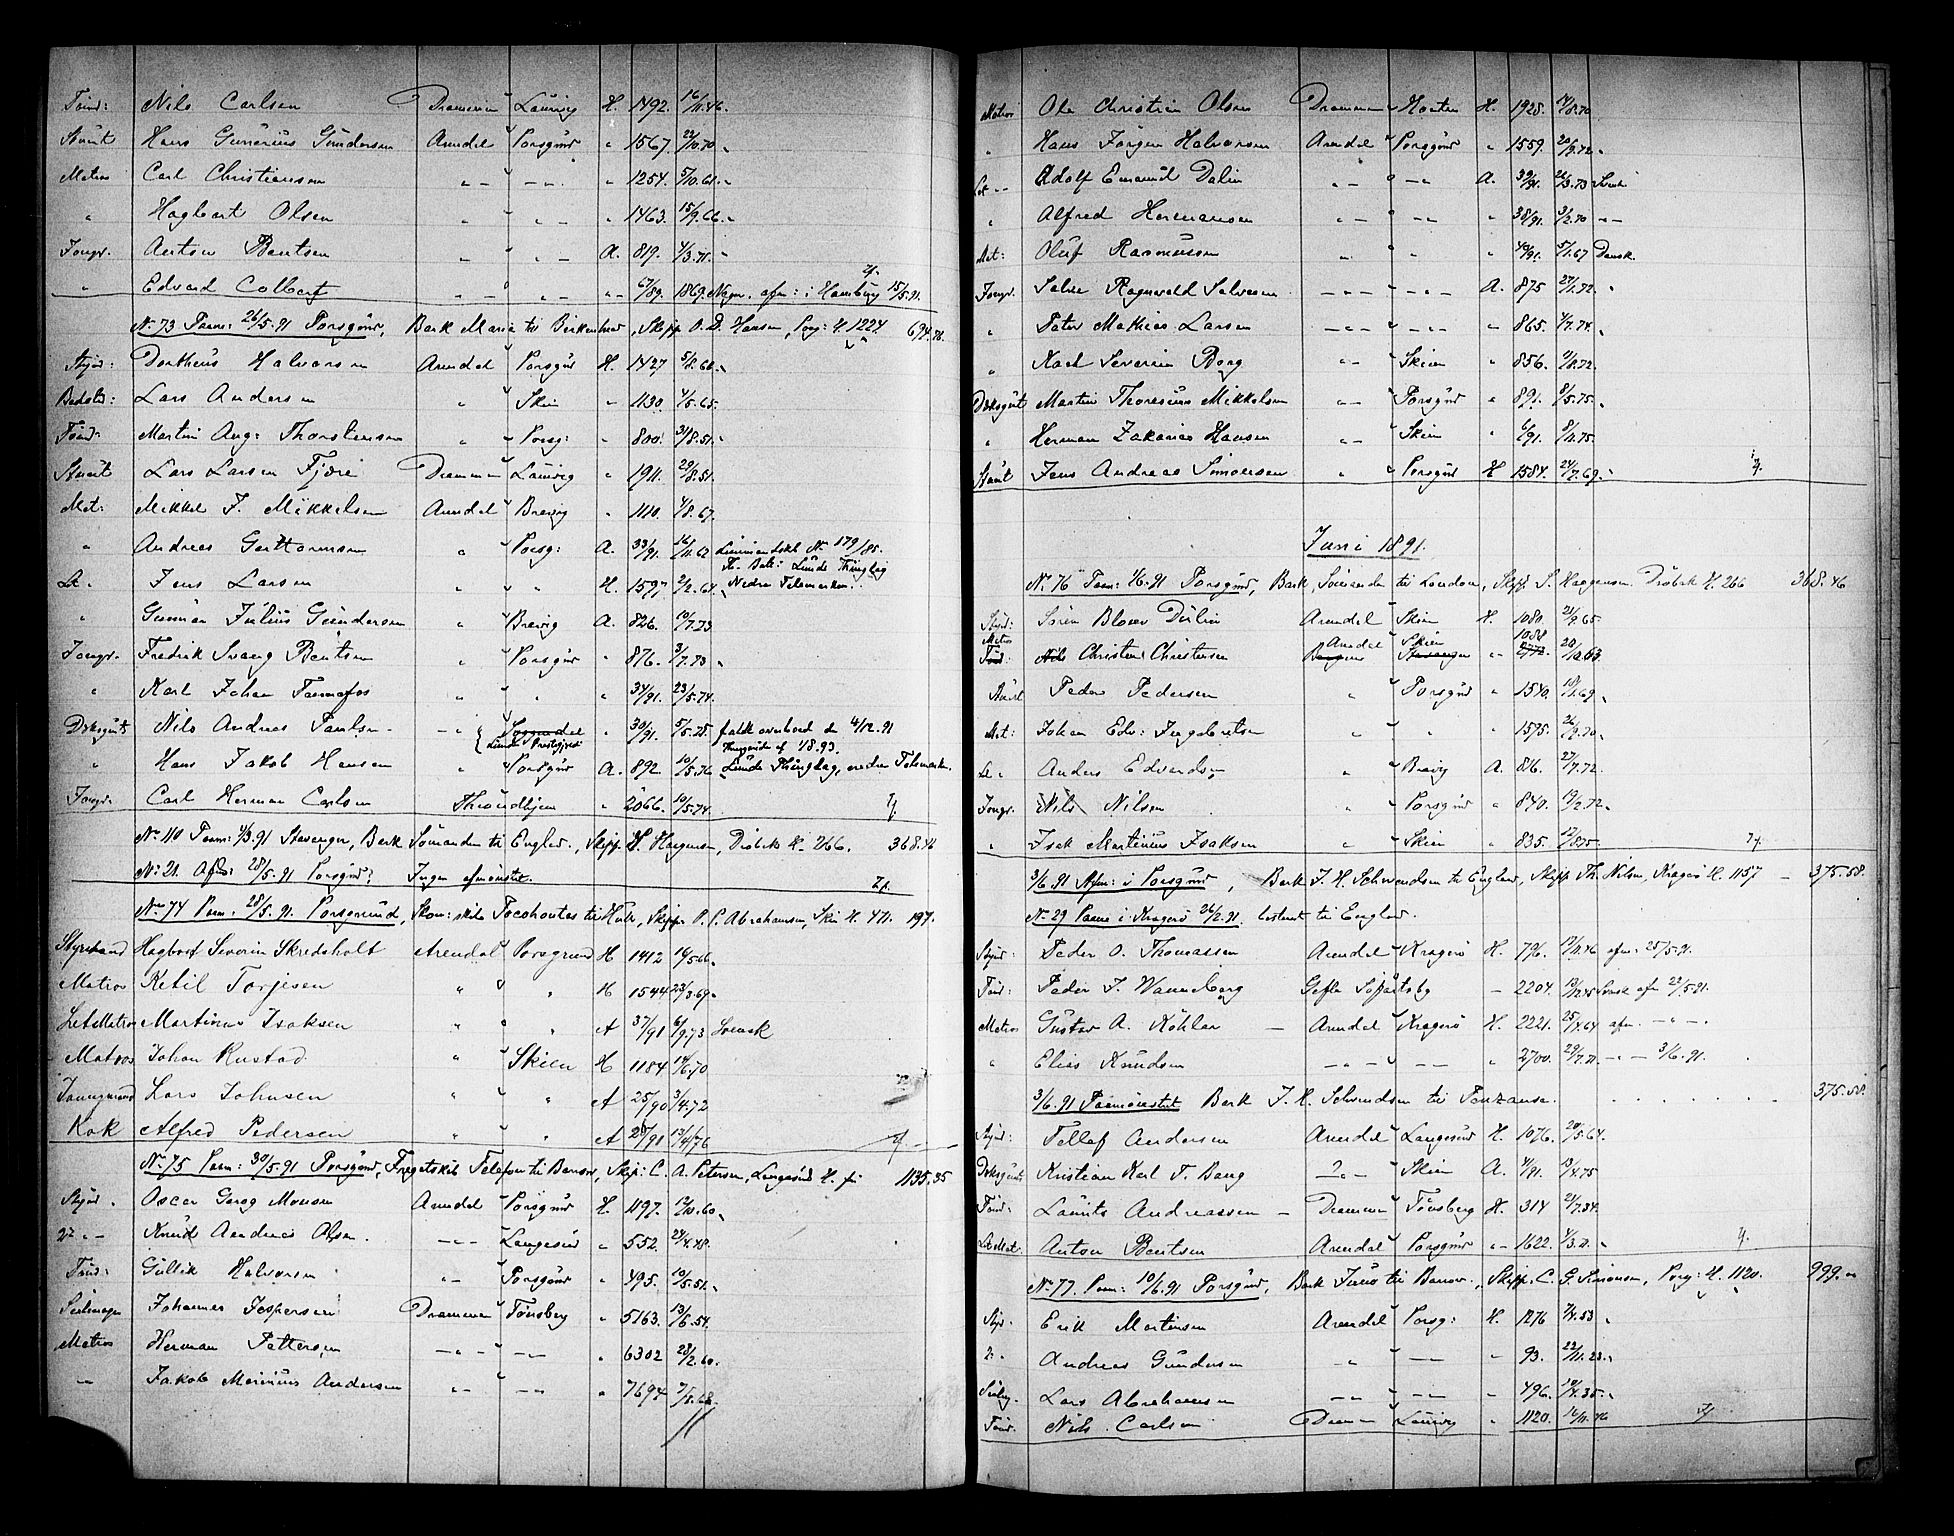 Tømd: Nils Carlsen Drammen Laurvig H. 1492. 16/11.46.
Stuert Hans Gunerius Gundersen Arendal Porsgrund " 1567. 22/10.70
Matros Carl Christiansen " - " - " 1254. 5/10.61.
" Hagbart Olsen " " - 1463. 15/9.66.
Jongr. Anton Bentsen " - " - A. 819. 4/3.71.
" Edvard Colberg " - " - " - 67/89. 1869. afm: i Hamburg 15/5.91.
No. 73 Paam: 26/5.91 Porsgrund, Bark Maria til Birkenhead, Skipp O. D. Hansen, Porsg: H. 1224 694.76
Styrd: Dortheus Halvorsen Arendal Porsgrd H. 1427 5/8.66
Baadsmd: Lars Andersen " Skien - 1130. 4/5.65.
Tømd: Martin Aug: Thorstensen " Porsg: " 800. 31/8.51
Stuert Lars Larsen Fjære Drammen Laurvig " 1911. 29/8.51.
Mat: Mikkel J. Mikkelsen Arendal Brevig " 1110. 4/8.67.
" Andreas Guttormsen " Porsg: A. 33/91. 16/11.62 No 179/85.
Lt. " Jens Larsen " " H. 1597 2/2.64 Nedre Telemarken.
" Gunnar Julius Gundersen " Brevig A. 826. 10/7.73
Jongr. Fredrik Svang Bentsen " Porsgrund " 876. 3/7.73
" Karl Johan Tømmefos " " " 34/91. 23/5.74.
Dæksgut Nils Andreas Paulsen - " " 30/91. 5/5.75. faldt overbord den 4/12.91
" Hans Jakob Hansen " Porsgrund A. 892 10/5.76 Lunde Thinglag, nedre Telemarken.
Jongr. Carl Herman Carlsen Throndhjem " 2066. 10/5.74.
No 110 Paam: 4/3.91 Stavanger, Bark Sømanden til England., Skipp. S. Haagensen, Drøbak H. 266. 368.46
No. 21. Afm: 28/5.91 Porsgrund. Ingen afmønstret.
No 74 Paam. 28/5.91. Porsgrund, Skon: skib Pocohontas til Hull, Skipp. P. P. Abrahamsen, Skien H. 471. 197.
Styrmand Hagbart Severin Skredsholt Arendal Porsgrund H 1412 19/5.66
Matros Ketil Torjesen " " H 1544 23/3.69
Let Matros Martinus Isaksen " " A 37/91 6/9.73 Svensk
Matros Johan Rustad " Skien H 1184 14/6.70
Jungmand Lars Johnsen " " A 25/90 3/4.72
Kok Alfred Pedersen " " A 28/91 13/4/76
No. 75 Paam: 30/5.91 Porsgrund, Fregatskib Telefon til Barrow, Skip: C. A. Petersen, Langesund H. 1135.35
Styrd. Oscar Georg Monsen Arendal Porsgrund H. 1197. 12/10.60
2d " - Knud Andreas Olsen. - " - Langesund " 552. 24/4.48.
Tømd: Gullik Halvorsen " - Porsgrund " 495. 10/5.51.
Seilmager Johannes Jespersen Drammen Tønsberg " 5163. 13/6.54.
Matros Herman Pettersen - " - " - " 6302 28/2.60.
" Jakob Marinius Andersen " - " - " 7694 7/5.68.
Matros Ole Christian Olsen Drammen Horten H. 1928. 14/8.70
" Hans Jørgen Halvorsen Arendal Porsgrund " 1559. 20/9.72
Let " - Adolf Emanuel Dalin " - " - A. 39/91. 26/3.73 Svensk
" Alfred Hermansen " - " - " 38/91. 3/2.70 " -
Mat: Oluf Rasmussen " " " 40/91. 5/1.67 Dansk.
Jongr. Salve Ragnvald Salvesen - " - " - A. 875 27/1.72.
" Peter Mathias Larsen - " - " - " 865. 4/7.74.
" Karl Severin Borg " - Skien " 856. 9/8.72.
Dæksgut Martin Thoresius Mikkelsen " - Porsgrund " 891. 8/5.75.
" Herman Zakarias Hansen " - Skien " 6/91. 8/11.75.
Stuert Jens Andreas Simonsen " Porsgrund H 1584. 24/7.69.
Juni 1891.
No. 76 Paam: 1/6.91 Porsgrund, Bark, Sømanden til London, Skipp S. Haagensen. Drøbak H. 266 368.46
Styrd: Søren Blower Durlin Arendal Skien H. 1080. 21/9.65.
Matros Nils Christian Christensen Arendal Skien " 1088 20/10.63
Stuert Peder Pedersen " Porsgrund " 1540. 18/1.69
Mat: Johan Edv: Ingebretsen " " " 1575. 26/9.70.
Lt " Anders Edvardsen " Brevig A. 816. 27/7.72.
Jongr. Nils Nilsen " Porsgrund " 840. 19/2.72.
" Isak Martinius Isaksen " Skien " 835. 12/8.75
3/6.91 Afm: i Porsgrund, Bark J. H. Schwendsen til England, Skipp Th. Nilsen, Kragerø H. 1157 - 375.58.
No. 29 Paam i Kragerø 26/2.91. bestemt til England.
Styrd: Peder O. Thomassen Arendal Kragerø H. 796. 19/11.46 afm: 25/5.91.
Tømd: Peder J. Wanneberg Gefle Sjøfartsby - 2204. 13/12.45 Svensk afm 22/5.91.
Matros Gustav A. Köhler - Arendal Kragerø H. 2221. 25/4.64 afm. - " -.
" Elias Knudsen - " - - " - " 2700. 29/7.71 - " - 3/6.91.
3/6.91 Paamønstret Bark J. H. Schwendsen til Penzance. 375.58.
Styrd: Tellef Andersen Arendal Langesund H. 1076. 20/5.64.
Dæksgut Kristian Karl T. Bang " - Skien A. 4/91. 13/4.75
Tømd: Laurits Andreassen - Drammen Tønsberg H. 314 21/7.34.
Let Mat. Anton Bentsen Arendal Porsgrund " - 1622. 4/3.71.
No. 77. Paam: 10/6.91 Porsgrund, Bark Juno til Barrow, Skipp. C. G. Simonsen, Porsg: H. 1120. 999.
Styrd. Erik Mortensen Arendal Porsg: H. 1276 7/4.53
2. " Andreas Gundersen " - - " - " 93. 22/11.28.
Seilmg. Lars Abrahamsen - " - - " - " 496. 19/4.35.
Tømd. Nils Carlsen Drammen Laurvig " 1120. 16/11.46